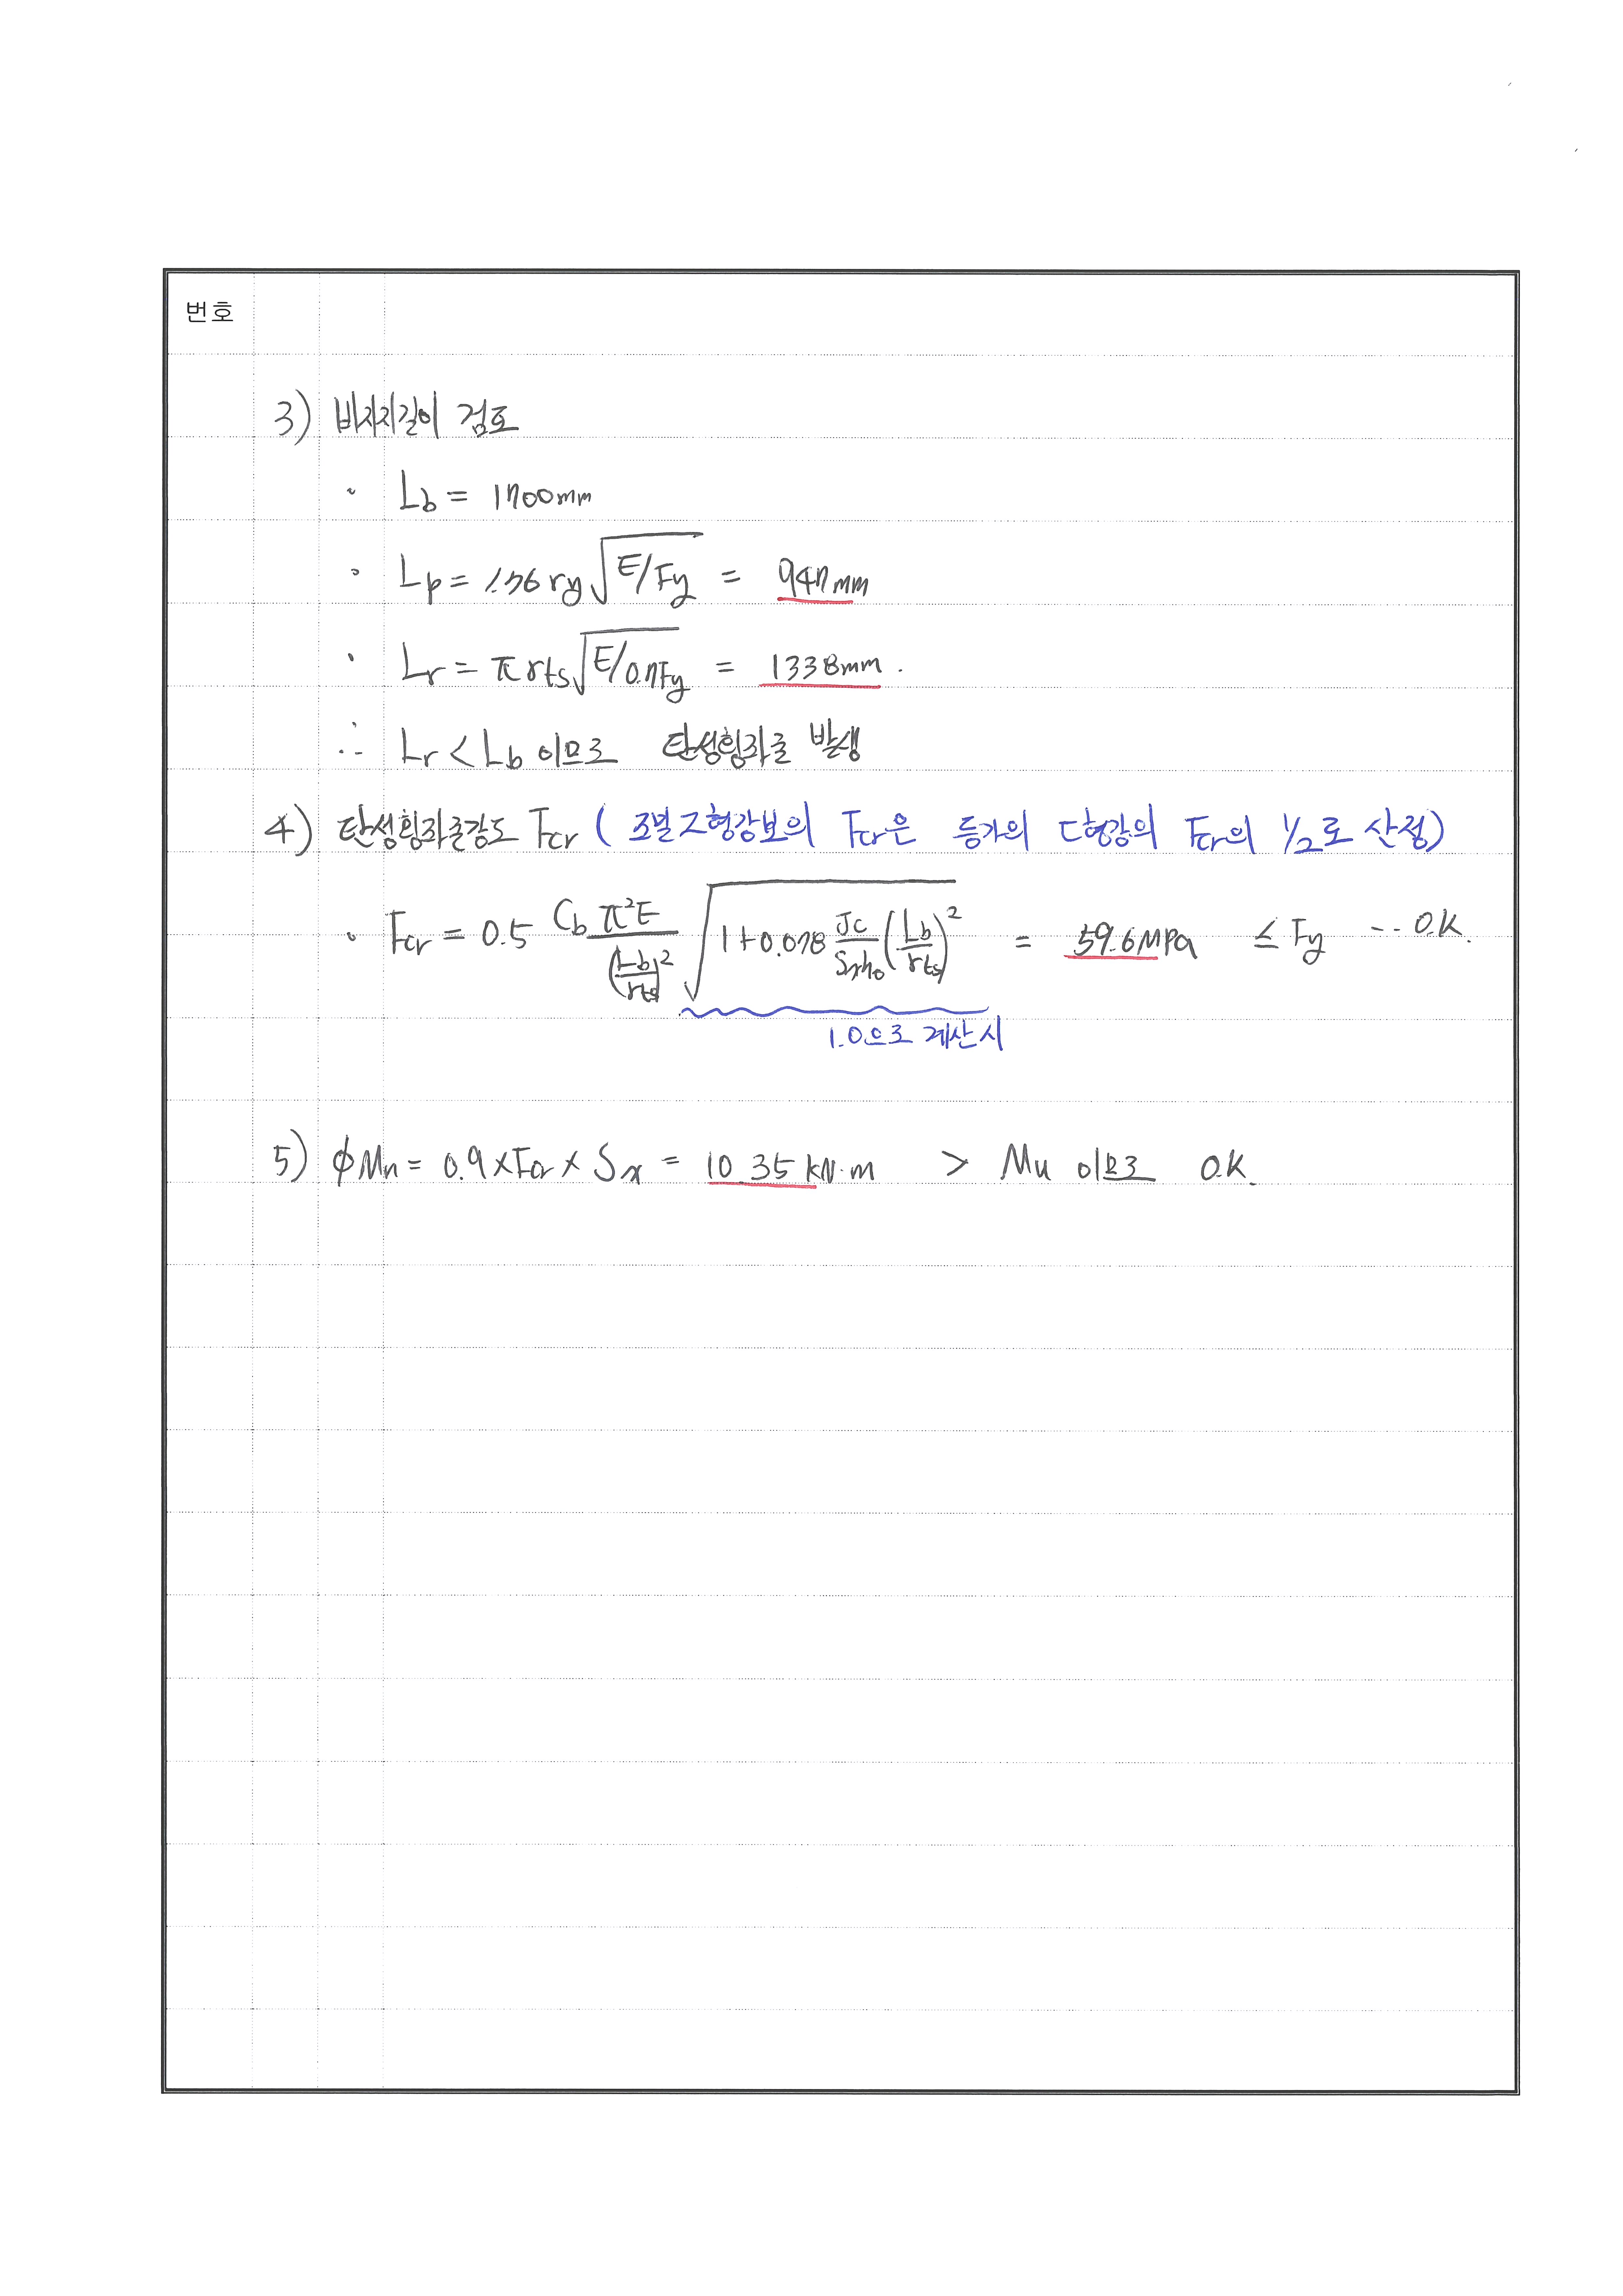 번호
3) 비지지길이 검토
· Lb = 1700mm
· Lp = 1.76 ry √(E/Fy) = 947mm
· Lr = π rts √(E/0.7Fy) = 1338mm.
∴ Lr < Lb 이므로 탄성횡좌굴 발생
4) 탄성횡좌굴강도 Fcr ( 조벌 Z형강보의 Fcr은 등가의 ㄷ형강의 Fcr의 1/2로 산정)
· Fcr = 0.5 Cb π²E / (Lb/rts)² √(1+0.078 Jc/Sxho (Lb/rts)²) = 59.6MPa ≤ Fy --- O.K.
1.0으로 계산시
5) φMn = 0.9×Fcr×Sx = 10.35 kN·m > Mu 이므로 O.K.